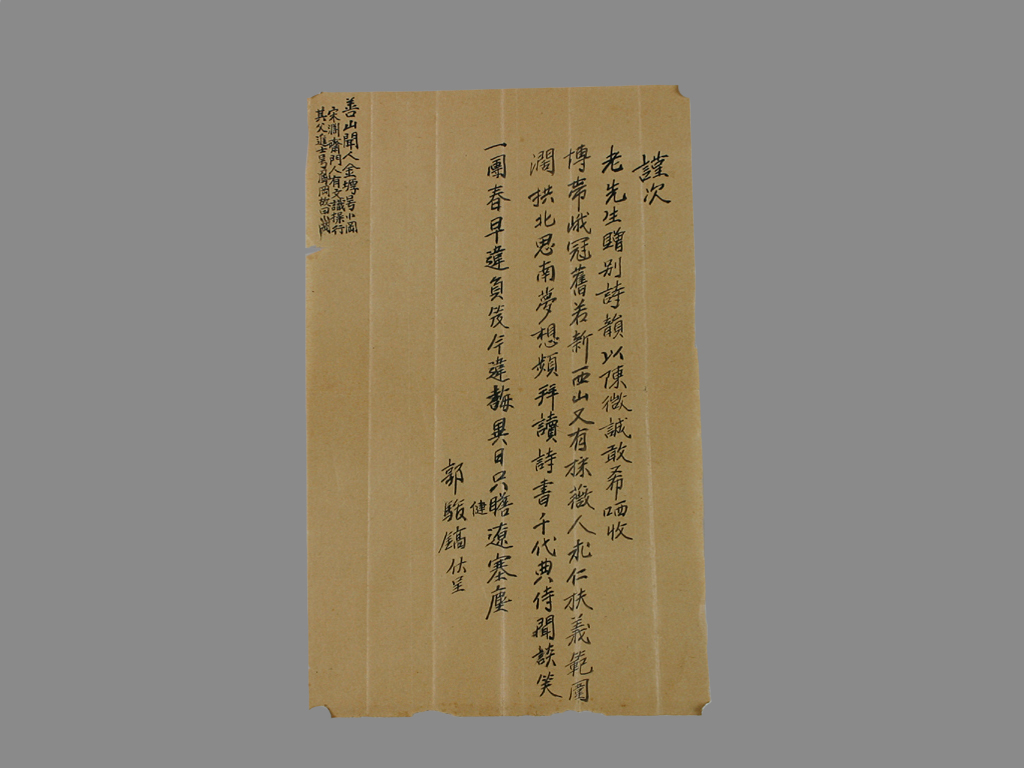 謹次
老先生贈别詩韻以陳微誠敢希哂收
博帶峨冠舊若新西山又有採薇人求仁扶義範圍
濶拱北思南夢想頻拜讀詩書千代典侍聞談笑
一團春早違負笈今違誨異日只瞻遼塞塵
健
郭駿鎬伏呈
善山聞人金㙉号小岡
宋澗齋門人有文識操行
其父進士号